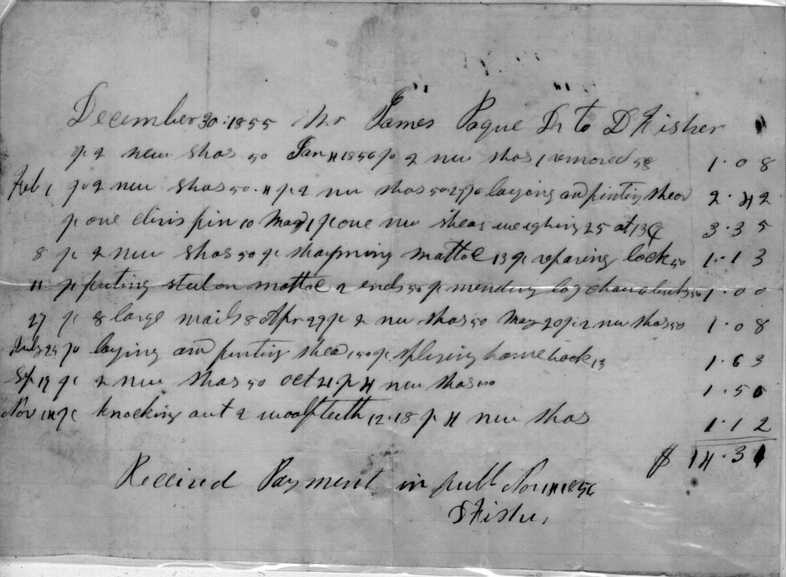 December 30 · 1855 Mr James Pogue Dr to D Fisher
pr 2 new shos 50 Jan 11 1856 pr 2 new shos 1 removed 58 1·08
Feb 1 pr 2 new shos 50 · 11 pr 2 new shos 50 27 pr laying and pinting shear 2·42
pr one clivis pin 10 May 1 pr one new shear weighing 25 at 13 3·35
8 pr 2 new shos 50 pr sharpning mattoc 13 pr reparing lock 50 1·13
11 pr putting steel on mattoc 2 ends 50 pr mending log chain 50 1·00
27 pr 8 large nails 8 Apr 29 pr 2 new shos 50 May 20 pr 2 new shos 50 1·08
25 pr laying and pinting shear 1 50 pr splising hame hook 13 1·63
Sep 19 pr 2 new shos 50 oct 21 pr 4 new shos 100 1·50
Nov pr knocking out 2 woolf teeth 12 · 18 pr 4 new shos 1·12
$ 14·31
Received Payment in full Nov 1856
D Fisher